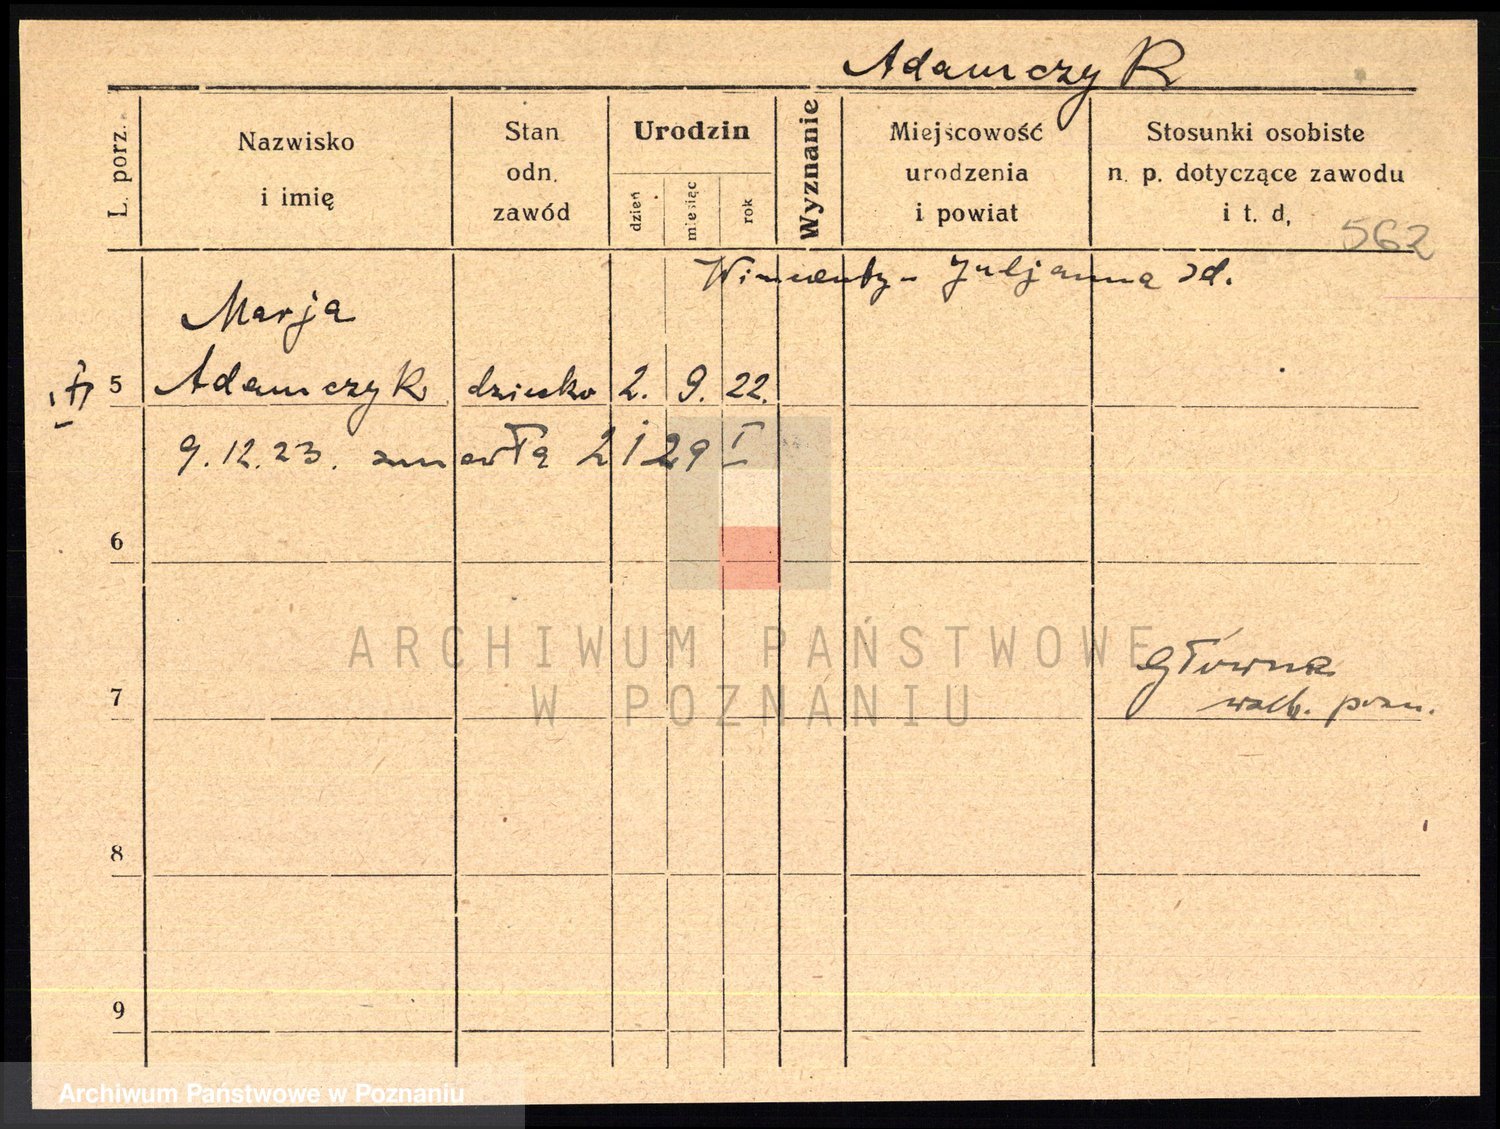 Adamczyk
L. porz.
Nazwisko
i imię
Stan
odn.
zawód
Urodzin
dzień
miesiąc
rok
Wyznanie
Miejscowość
urodzenia
i powiat
Stosunki osobiste
n. p. dotyczące zawodu
i t. d,
562
Wincenty - Juljanna
Marja
5 Adamczyk dziecko 2. 9. 22.
9.12.23. zmarła
6
ARCHIWUM PAŃSTWOWE
W POZNANIU
Główna
7
8
9
Archiwum Państwowe w Poznaniu